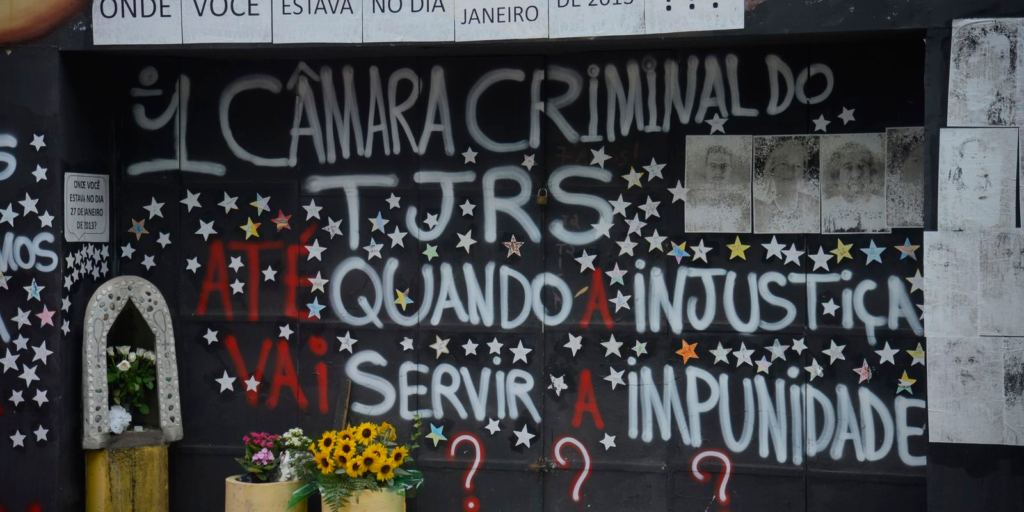 ONDE VOCÊ ESTAVA NO DIA JANEIRO DE 2013 ???
1ª CÂMARA CRIMINAL DO
TJRS
ATÉ QUANDO A INJUSTIÇA
VAI SERVIR A IMPUNIDADE
? ? ?
ONDE VOCÊ
ESTAVA NO DIA
27 DE JANEIRO
DE 2013?
S
MOS
A